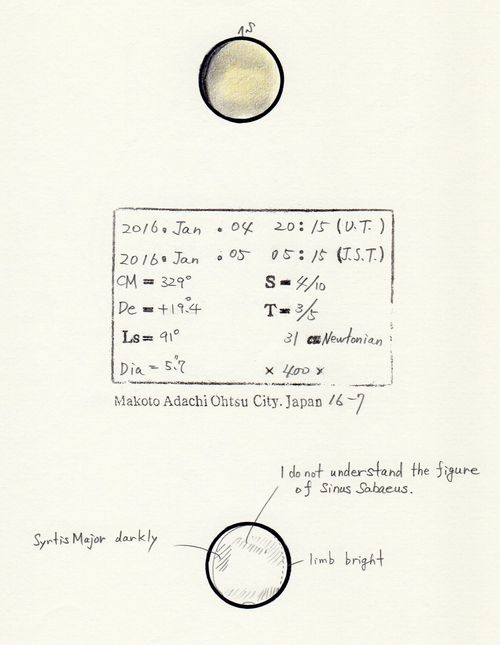 ↑S
2016. Jan . 04 20:15 (U.T.)
2016. Jan . 05 05:15 (J.S.T.)
CM = 329° S = 4/10
De = +19.°4 T = 3/5
Ls = 91° 31 cm Newtonian
Dia = 5."7 × 400 ×
Makoto Adachi Ohtsu City. Japan 16-7
I do not understand the figure
of Sinus Sabaeus.
Syrtis Major darkly
limb bright